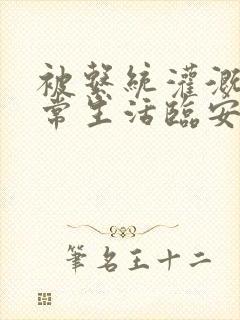 被繫統灌溉
常生活臨安
筆名王十二